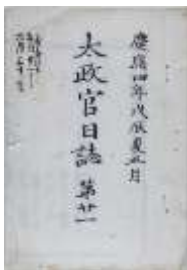 慶應四年戊辰夏五月
太政官日誌 第廿一